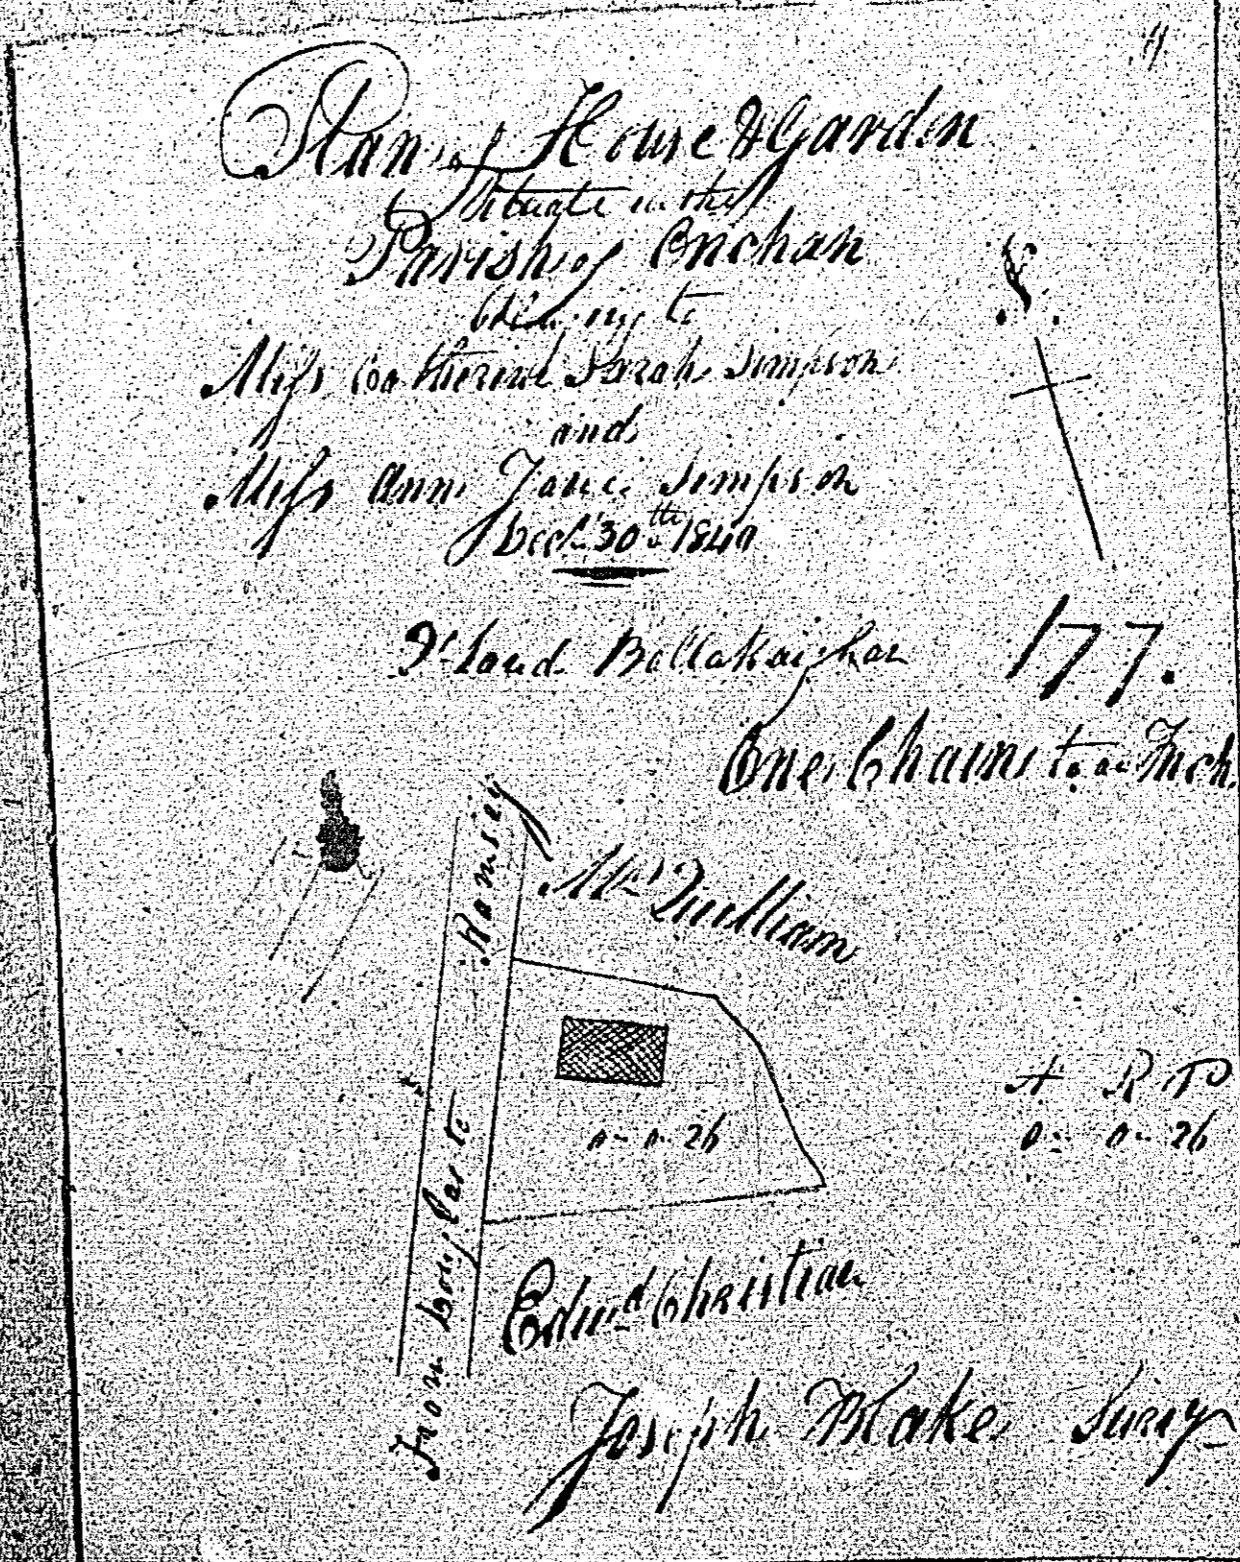 Plan of House & Garden
Situate in the
Parish of Onchan
belonging to
Miss Catherine Sarah Simpson
and
Miss Ann Jane Simpson
Decr 30th 1840
Qr land Ballakaighan
177.
One Chains to an Inch
Ramsey
Mrs Quilliam
A R P
0 - 0 - 26
0 - 0 - 26
From Douglas to
Edwd Christian
Joseph Blake Survy